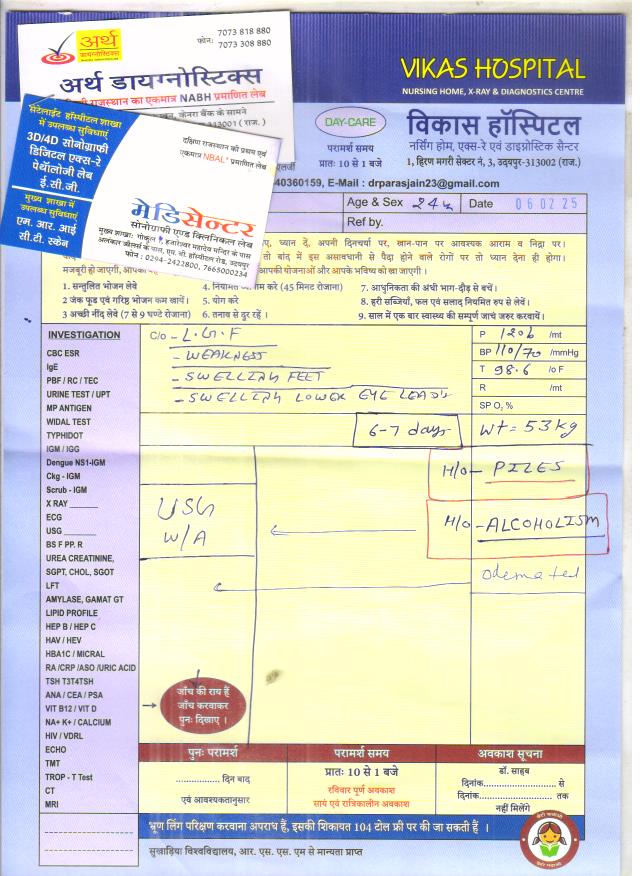 अर्थ
डायग्नोस्टिक्स
फोन: 7073 818 880
7073 308 880
अर्थ डायग्नोस्टिक्स
राजस्थान का एकमात्र NABH प्रमाणित लेब
केनरा बैंक के सामने
313001 ( राज. )
सेटेलाईट हॉस्पीटल शाखा
में उपलब्ध सुविधाएं
3D/4D सोनोग्राफी
डिजिटल एक्स-रे
पेथॉलोजी लेब
ई.सी.जी.
मुख्य शाखा में
उपलब्ध सुविधाएं
एम. आर. आई
सी.टी. स्केन
दक्षिण राजस्थान की प्रथम एवं
एकमात्र NBAL* प्रमाणित लेब
मेडिसेन्टर
सोनोग्राफी एण्ड क्लिनिकल लेब
फोन : 0294-2422800, 7665000234
VIKAS HOSPITAL
NURSING HOME, X-RAY & DIAGNOSTICS CENTRE
DAY-CARE
परामर्श समय
प्रातः 10 से 1 बजे
विकास हॉस्पिटल
नर्सिंग होम, एक्स-रे एवं डाइग्नोस्टिक सेन्टर
1, हिरण मगरी सेक्टर नं, 3, उदयपुर-313002 (राज.)
40360159, E-Mail : drparasjain23@gmail.com
Age & Sex 24
Date 06 02 25
Ref by.
ध्यान दें, अपनी दिनचर्या पर, खान-पान पर आवश्यक आराम व निद्रा पर।
तो बाद में इस असावधानी से पैदा होने वाले रोगों पर तो ध्यान देना ही होगा।
मजबूरी हो जाएगी, आपकी योजनाओं और आपके भविष्य को खा जाएगी।
1. सन्तुलित भोजन लेवे
4. नियमित करे (45 मिनट रोजाना)
7. आधुनिकता की अंधी भाग-दौड़ से बचें।
2 जंक फूड एवं गरिष्ठ भोजन कम खायें।
5. योग करे
8. हरी सब्जियाँ, फल एवं सलाद नियमित रुप से लेवें।
3 अच्छी नींद लेवे (7 से 9 घण्टे रोजाना)
6. तनाव से दूर रहें ।
9. साल में एक बार स्वास्थ्य की सम्पूर्ण जाचं जरुर करवायें।
INVESTIGATION
CBC ESR
IgE
PBF / RC / TEC
URINE TEST / UPT
MP ANTIGEN
WIDAL TEST
TYPHIDOT
IGM / IGG
Dengue NS1-IGM
Ckg - IGM
Scrub - IGM
X RAY ______
ECG
USG ______
BS F PP. R
UREA CREATININE,
SGPT, CHOL, SGOT
LFT
AMYLASE, GAMAT GT
LIPID PROFILE
HEP B / HEP C
HAV / HEV
HBA1C / MICRAL
RA /CRP /ASO /URIC ACID
TSH T3T4TSH
ANA / CEA / PSA
VIT B12 / VIT D
NA+ K+ / CALCIUM
HIV / VDRL
ECHO
TMT
TROP - T Test
CT
MRI
C/o - L.G.F
- WEAKNESS
- SWELLING FEET
- SWELLING LOWER EYE LEADS
6-7 days
P 120b /mt
BP 110/70 /mmHg
T 98.6 /o F
R /mt
SP O2 %
Wt = 53 kg
H/o - PILES
H/o - ALCOHOLISM
USG
W/A
जाँच की राय हैं
जाँच करवाकर
पुनः दिखाए ।
पुनः परामर्श
.................. दिन बाद
एवं आवश्यकतानुसार
परामर्श समय
प्रातः 10 से 1 बजे
रविवार पूर्ण अवकाश
सायं एवं रात्रिकालीन अवकाश
अवकाश सूचना
डॉ. साहब
दिनांक.................... से
दिनांक.................... तक
नहीं मिलेंगे
भ्रूण लिंग परिक्षण करवाना अपराध हैं, इसकी शिकायत 104 टोल फ्री पर की जा सकती हैं ।
सुखाड़िया विश्वविद्यालय, आर. एस. एस. एम से मान्यता प्राप्त